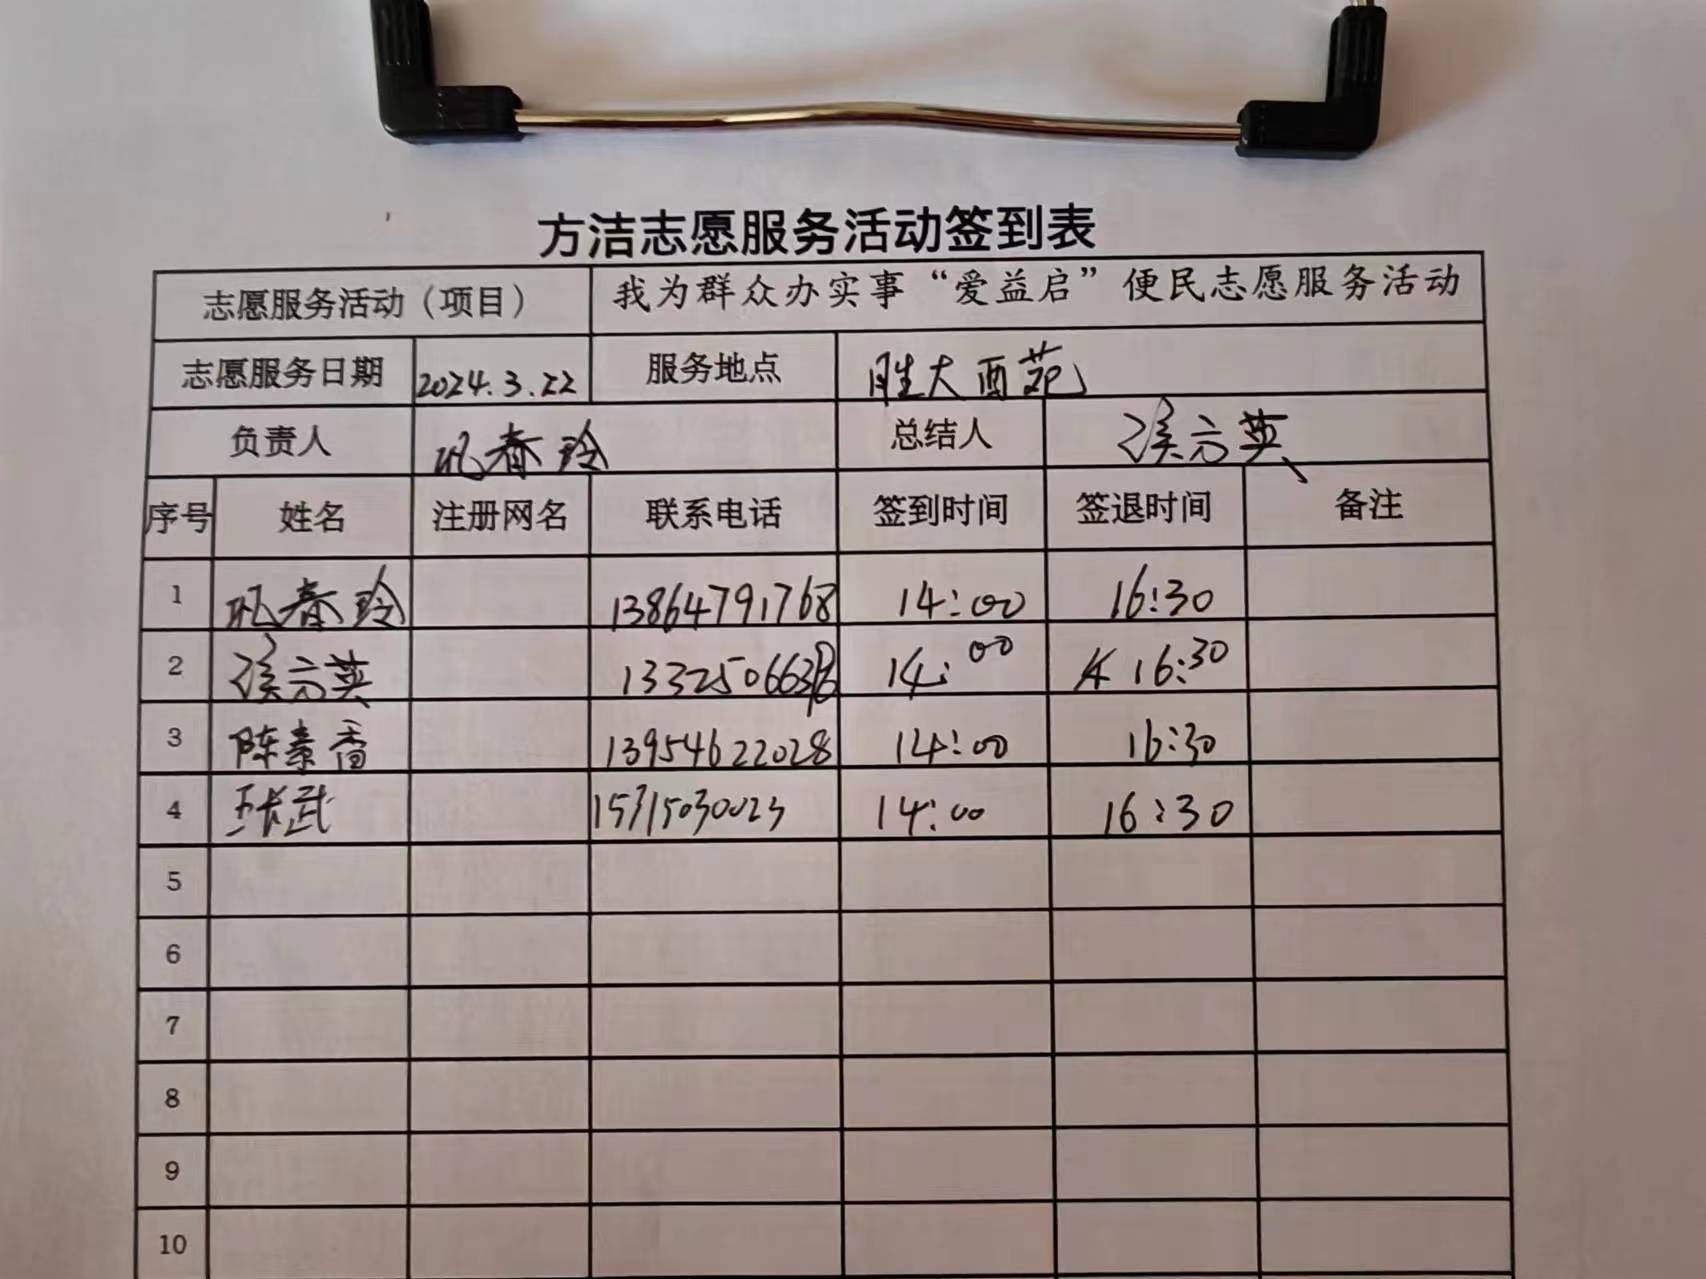 方洁志愿服务活动签到表
志愿服务活动（项目） 我为群众办实事“爱益启”便民志愿服务活动
志愿服务日期 2024.3.22 服务地点 胜大西苑
负责人 春玲 总结人 英
序号 姓名 注册网名 联系电话 签到时间 签退时间 备注
1 春玲 13864791768 14:00 16:30
2 英 14:00 16:30
3 陈素香 13954622028 14:00 16:30
4 武 15715030023 14:00 16:30
5
6
7
8
9
10